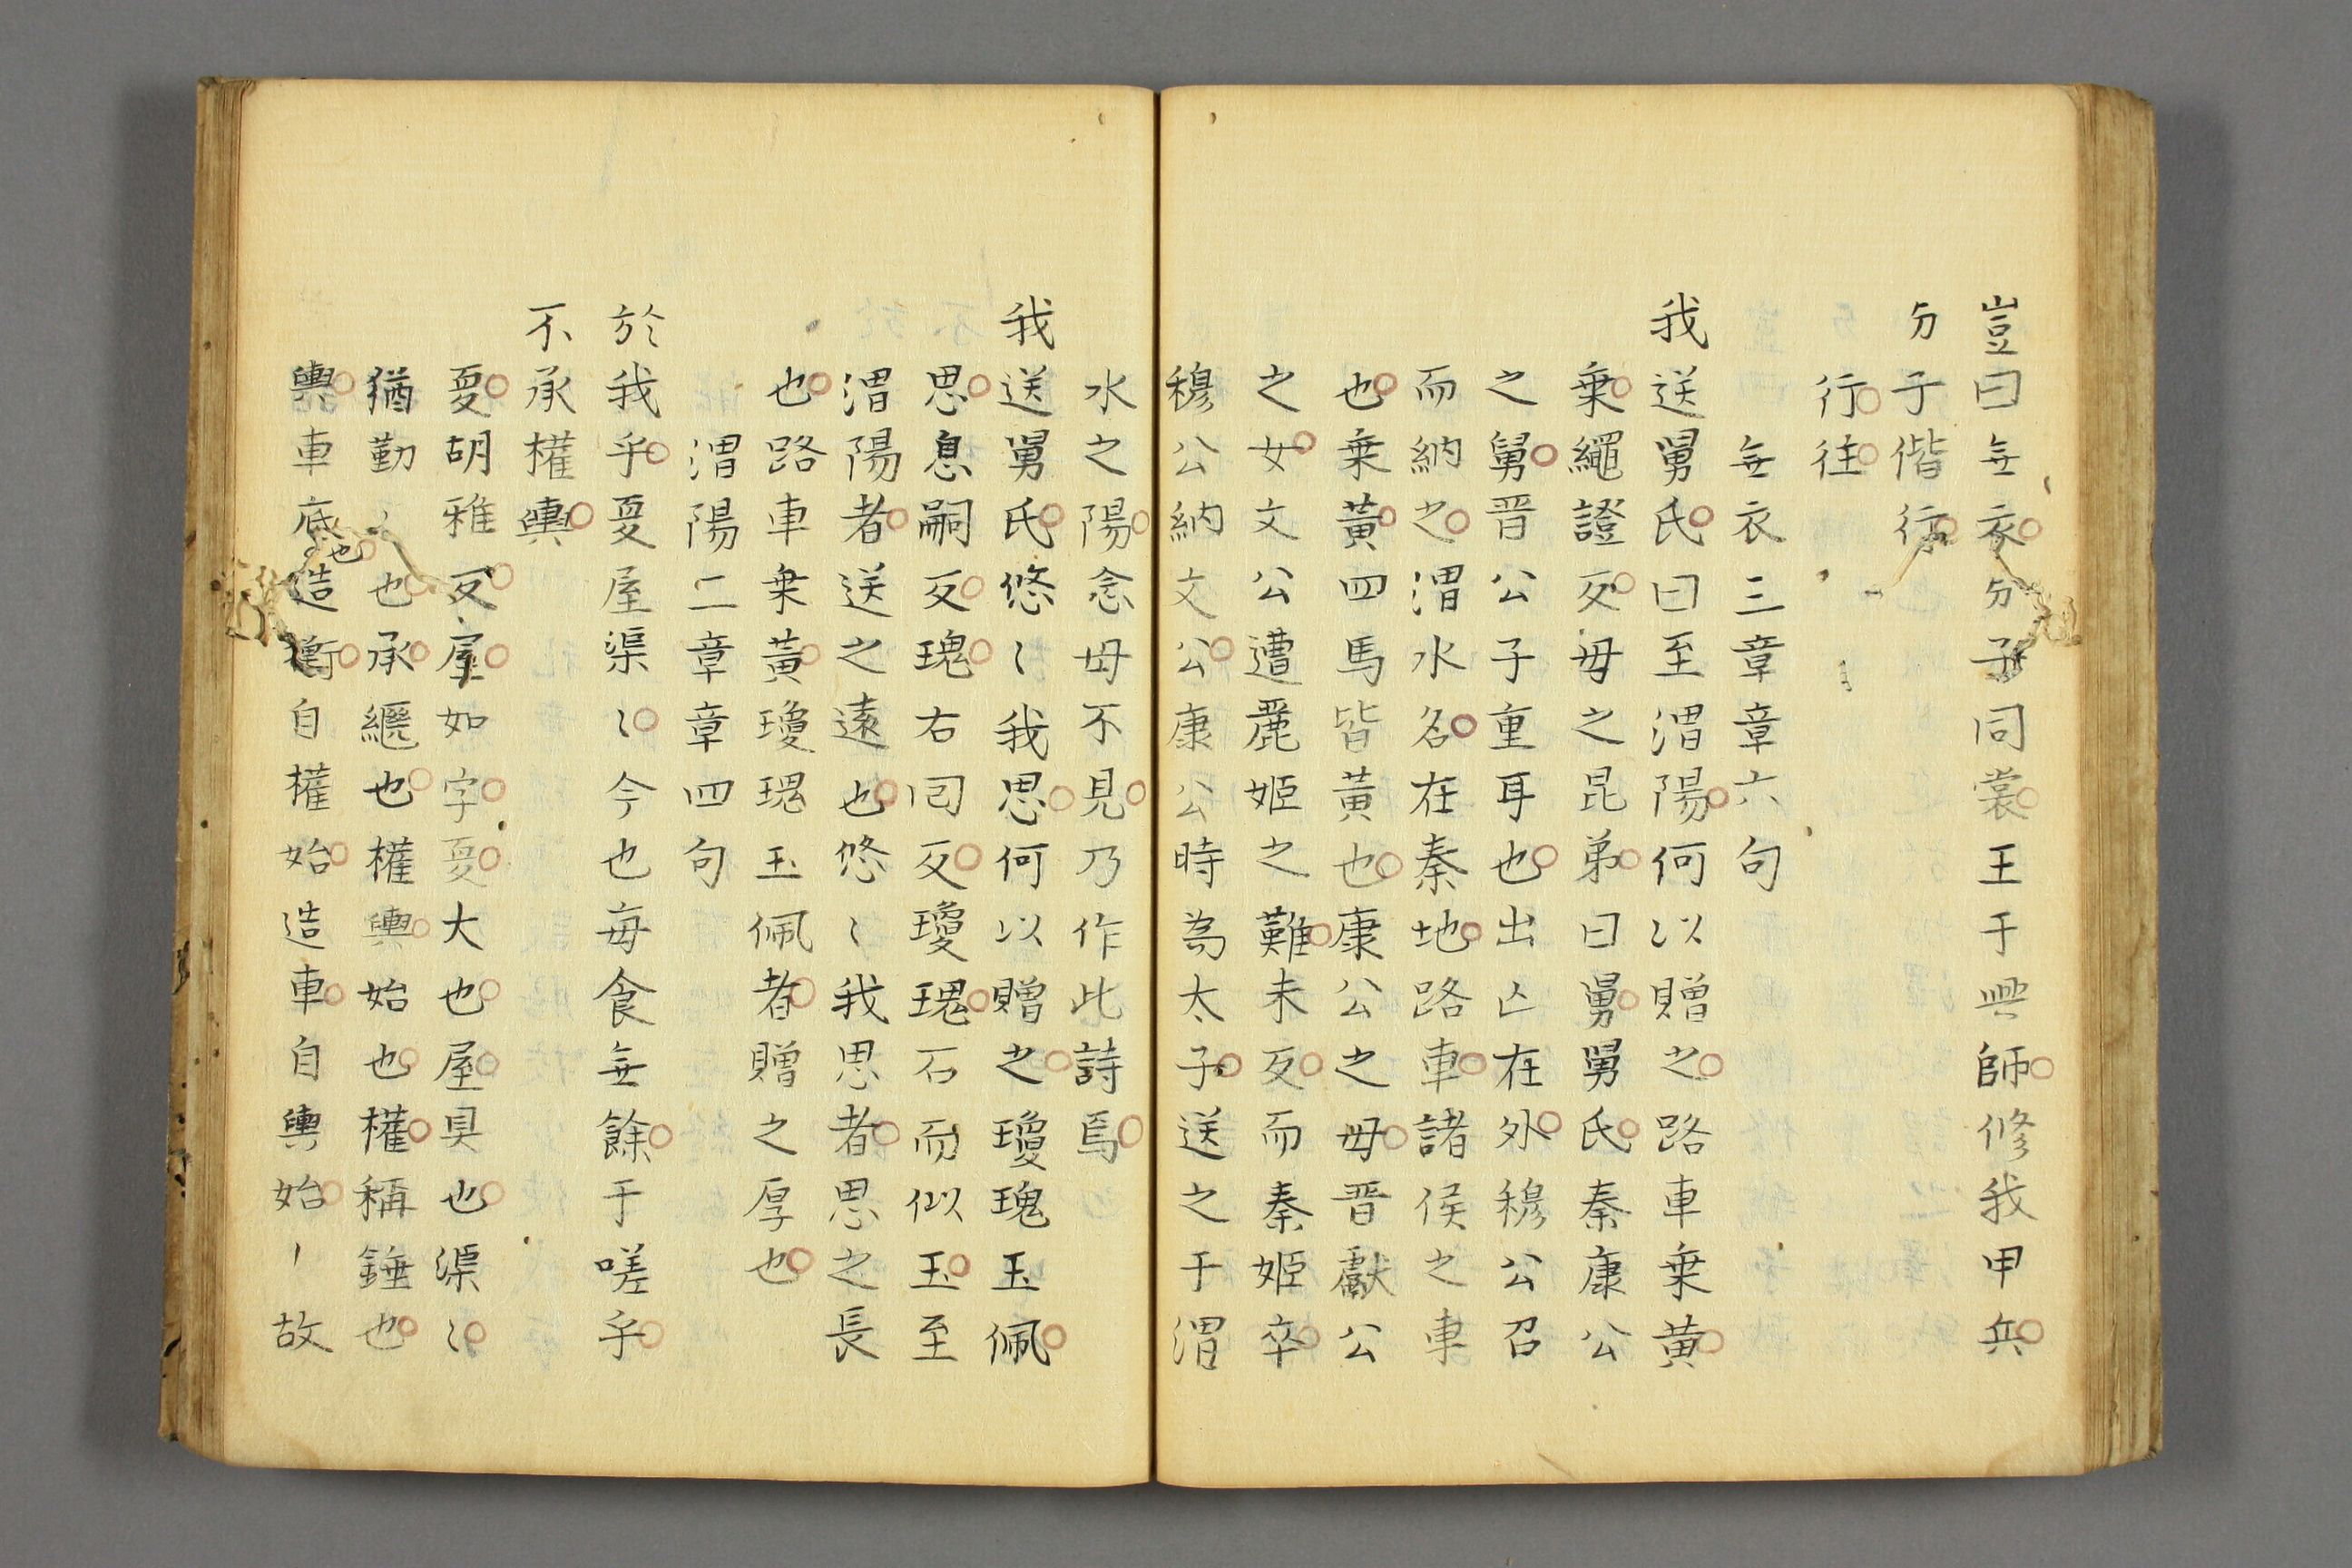 豈曰無衣與子同裳王于興師修我甲兵
與子偕行
行往
無衣三章章六句
我送舅氏曰至渭陽何以贈之路車乗黄
乗繩證反母之昆弟曰舅舅氏秦康公
之舅晋公子重耳也出亡在外穆公召
而納之渭水名在秦地路車諸侯之車
也乗黃四馬皆黃也康公之母晋獻公
之女文公遭麗姬之難未反而秦姬卒
穆公納文公康公時為太子送之于渭
水之陽念母不見乃作此詩焉
我送舅氏悠〻我思何以贈之瓊瑰玉佩
思息嗣反瑰右囘反瓊瑰石而似玉至
渭陽者送之遠也悠〻我思者思之長
也路車乗黃瓊瑰玉佩者贈之厚也
渭陽二章章四句
於我乎夏屋渠〻今也毎食無餘于嗟乎
不承權輿
夏胡雅反屋如字夏大也屋具也渠〻
猶勤〻也承繼也權輿始也權稱錘也
輿車底也造衡自權始造車自輿始〻故